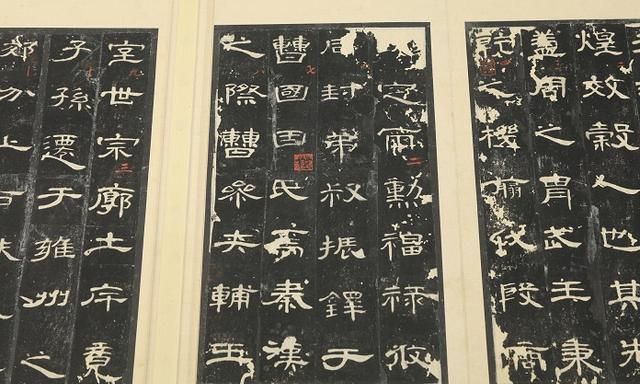 煌效穀人也其先
蓋周之胄武王秉
乾之機翦伐殷商
定爾勳福祿攸
同封弟叔振鐸于
曹國因氏焉秦漢
之際曹參夾輔王
室世宗廓土斥竟
子孫遷于雍州之
郊分止右扶